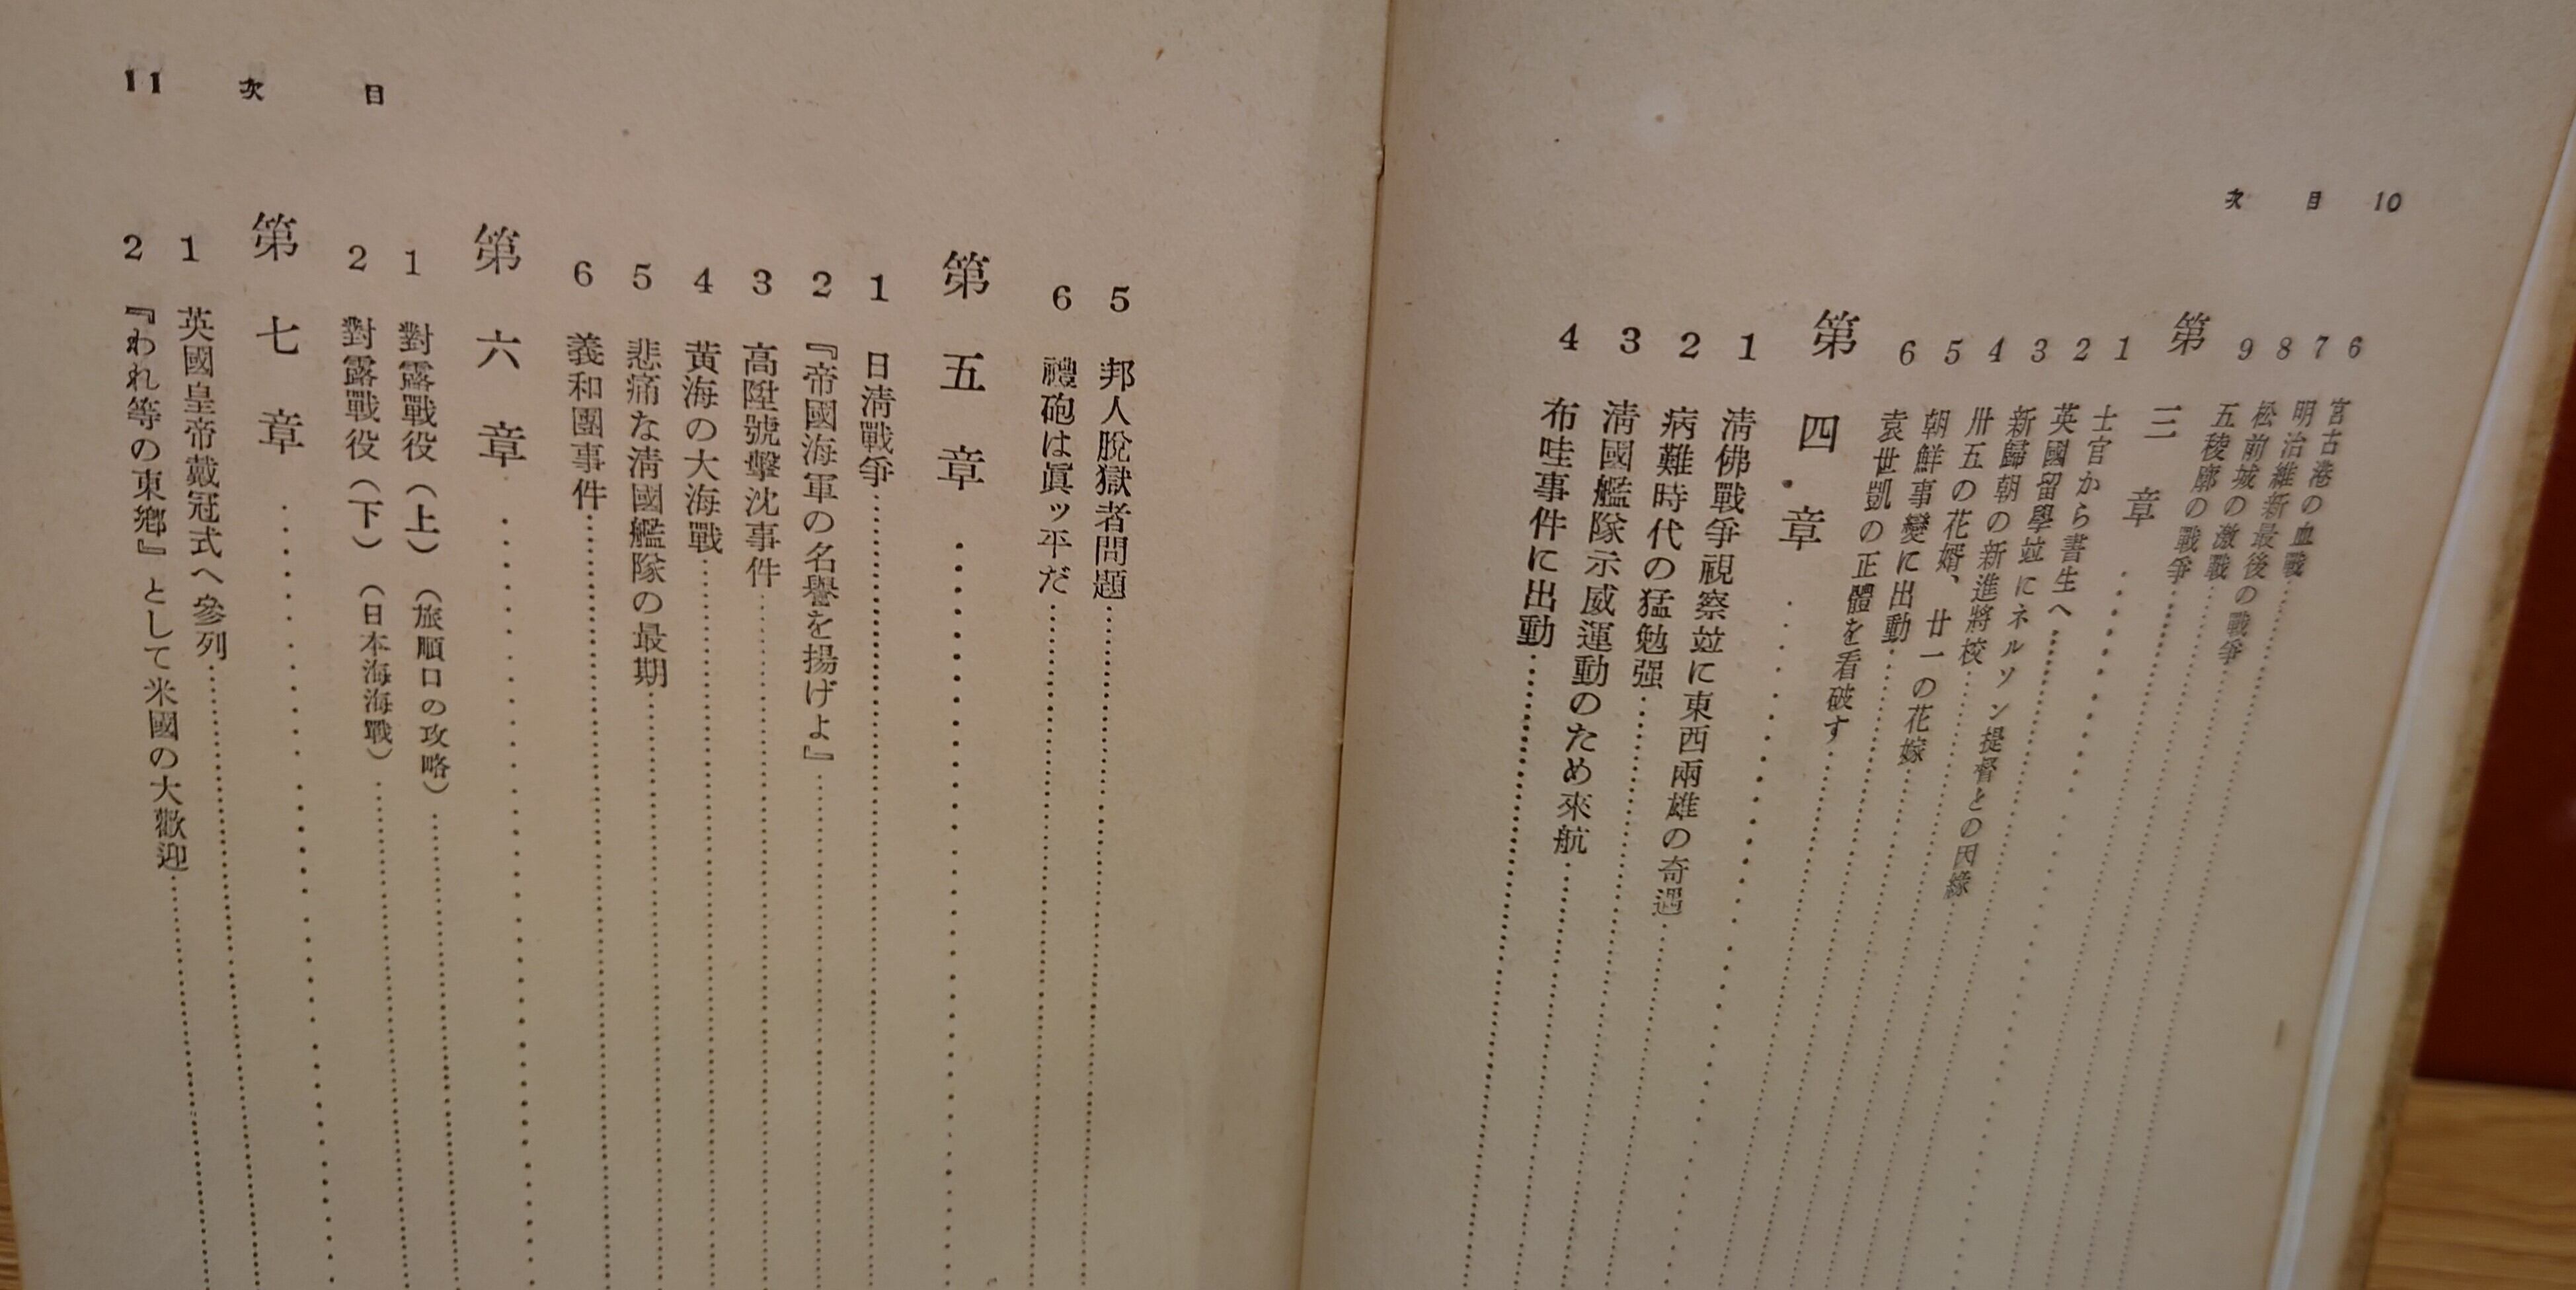 10 目次
6 宮古港の血戰
7 明治維新最後の戰爭
8 松前城の激戰
9 五稜廓の戰爭
第三章
1 士官から書生へ
2 英國留學竝にネルソン提督との因緣
3 新歸朝の新進將校
4 卅五の花婿、廿一の花嫁
5 朝鮮事變に出動
6 袁世凱の正體を看破す
第四章
1 淸佛戰爭視察竝に東西兩雄の奇遇
2 病難時代の猛勉强
3 淸國艦隊示威運動のため來航
4 布哇事件に出動
目次 11
5 邦人脫獄者問題
6 禮砲は眞ッ平だ
第五章
1 日淸戰爭
2 『帝國海軍の名譽を揚げよ』
3 高陞號擊沈事件
4 黃海の大海戰
5 悲痛な淸國艦隊の最期
6 義和團事件
第六章
1 對露戰役（上）（旅順口の攻略）
2 對露戰役（下）（日本海海戰）
第七章
1 英國皇帝戴冠式へ參列
2 『われ等の東鄕』として米國の大歡迎